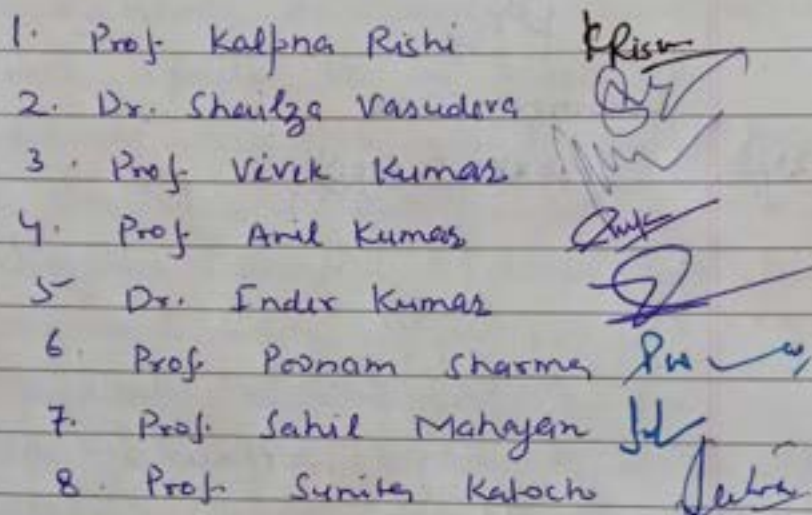 1. Prof. Kalpna Rishi KRishi
2. Dr. Shailza Vasudeva
3. Prof. Vivek Kumar
4. Prof. Anil Kumar
5 Dr. Inder Kumar
6. Prof. Poonam Sharma
7. Prof. Sahil Mahajan
8. Prof. Sunita Katoch